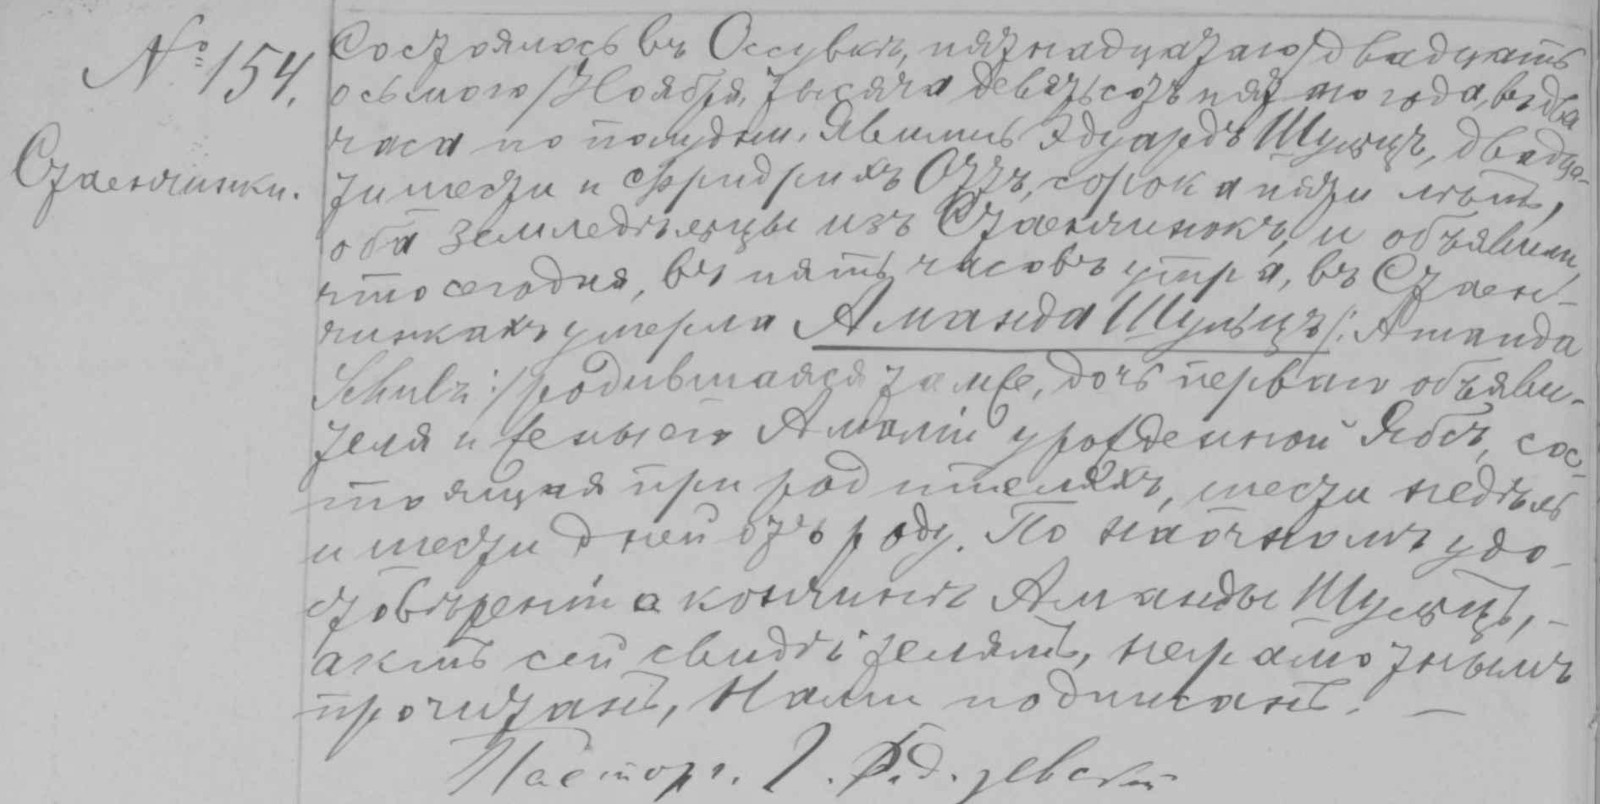 № 154.
Стаенчинки.
Состоялось въ Оссувкѣ, пятнадцатаго/двадцать
осьмого/Ноября, тысяча девятьсотъ пятаго года, въ два
часа по полудни. Явились Эдуардъ Шульцъ, двадца-
ти шести и Фридрихъ Оттъ, сорока пяти лѣтъ,
оба земледѣльцы изъ Стаенчинокъ, и объявили,
что сегодня, въ пять часовъ утра, въ Стаен-
чинкахъ умерла Аманда Шульцъ /: Amanda
Schulz :/ родившаяся тамже, дочь перваго объяви-
теля и жены его Амаліи урожденной Ябсъ, сос-
тоящая при родителяхъ, шести недѣль
и шести дней отъ роду. По наочномъ удо-
стовѣреніи о кончинѣ Аманды Шульцъ, -
актъ сей свидѣтелямъ, неграмотнымъ
прочитанъ, Нами подписанъ. —
Пасторъ.